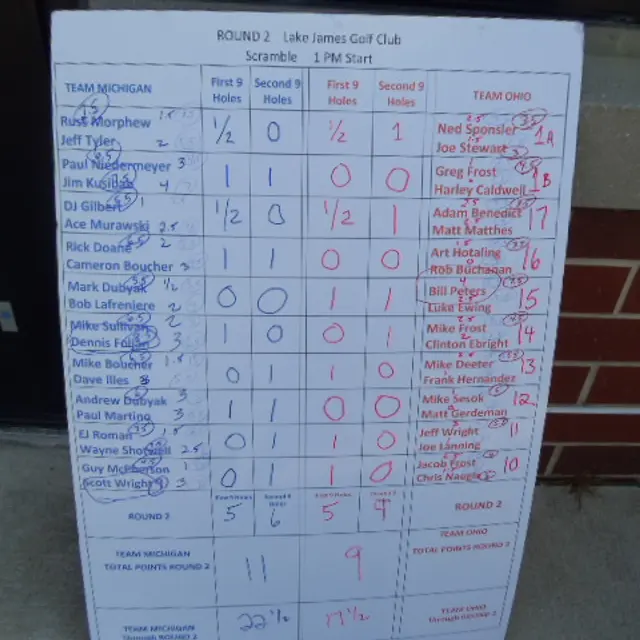 ROUND 2 Lake James Golf Club
Scramble 1 PM Start
TEAM MICHIGAN First 9 Holes Second 9 Holes First 9 Holes Second 9 Holes TEAM OHIO
Russ Morphew 1.5 1/2 0 1/2 1 Ned Sponsler 1A
Jeff Tyler 2 Joe Stewart
Paul Niedermeyer 3 1 1 0 0 Greg Frost 1B
Jim Kusibab 4 Harley Caldwell
DJ Gilbert 1 1/2 0 1/2 1 Adam Benedict 17
Ace Murawski 2.5 Matt Matthes
Rick Doane 2 1 1 0 0 Art Hotaling 16
Cameron Boucher 3 Rob Buchanan
Mark Dubyak 1/2 0 0 1 1 Bill Peters 15
Bob Lafreniere 2 Luke Ewing
Mike Sullivan 2 1 0 0 1 Mike Frost 14
Dennis 3 Clinton Ebright
Mike Boucher 1.5 0 1 1 0 Mike Deeter 13
Dave Illes 3 Frank Hernandez
Andrew Dubyak 3 1 1 0 0 Mike Sesok 12
Paul Martino 3 Matt Gerdeman
EJ Roman 1.5 0 1 1 0 Jeff Wright 11
Wayne Shotwell 2.5 Joe Lanning
Guy McPherson 1 0 1 1 0 Jacob Frost 10
Scott Wright 3 Chris Naegele
ROUND 2 5 6 5 4 ROUND 2
TEAM MICHIGAN TOTAL POINTS ROUND 2 11 9 TEAM OHIO TOTAL POINTS ROUND 2
TEAM MICHIGAN Through ROUND 2 22 1/2 17 1/2 TEAM OHIO Through ROUND 2